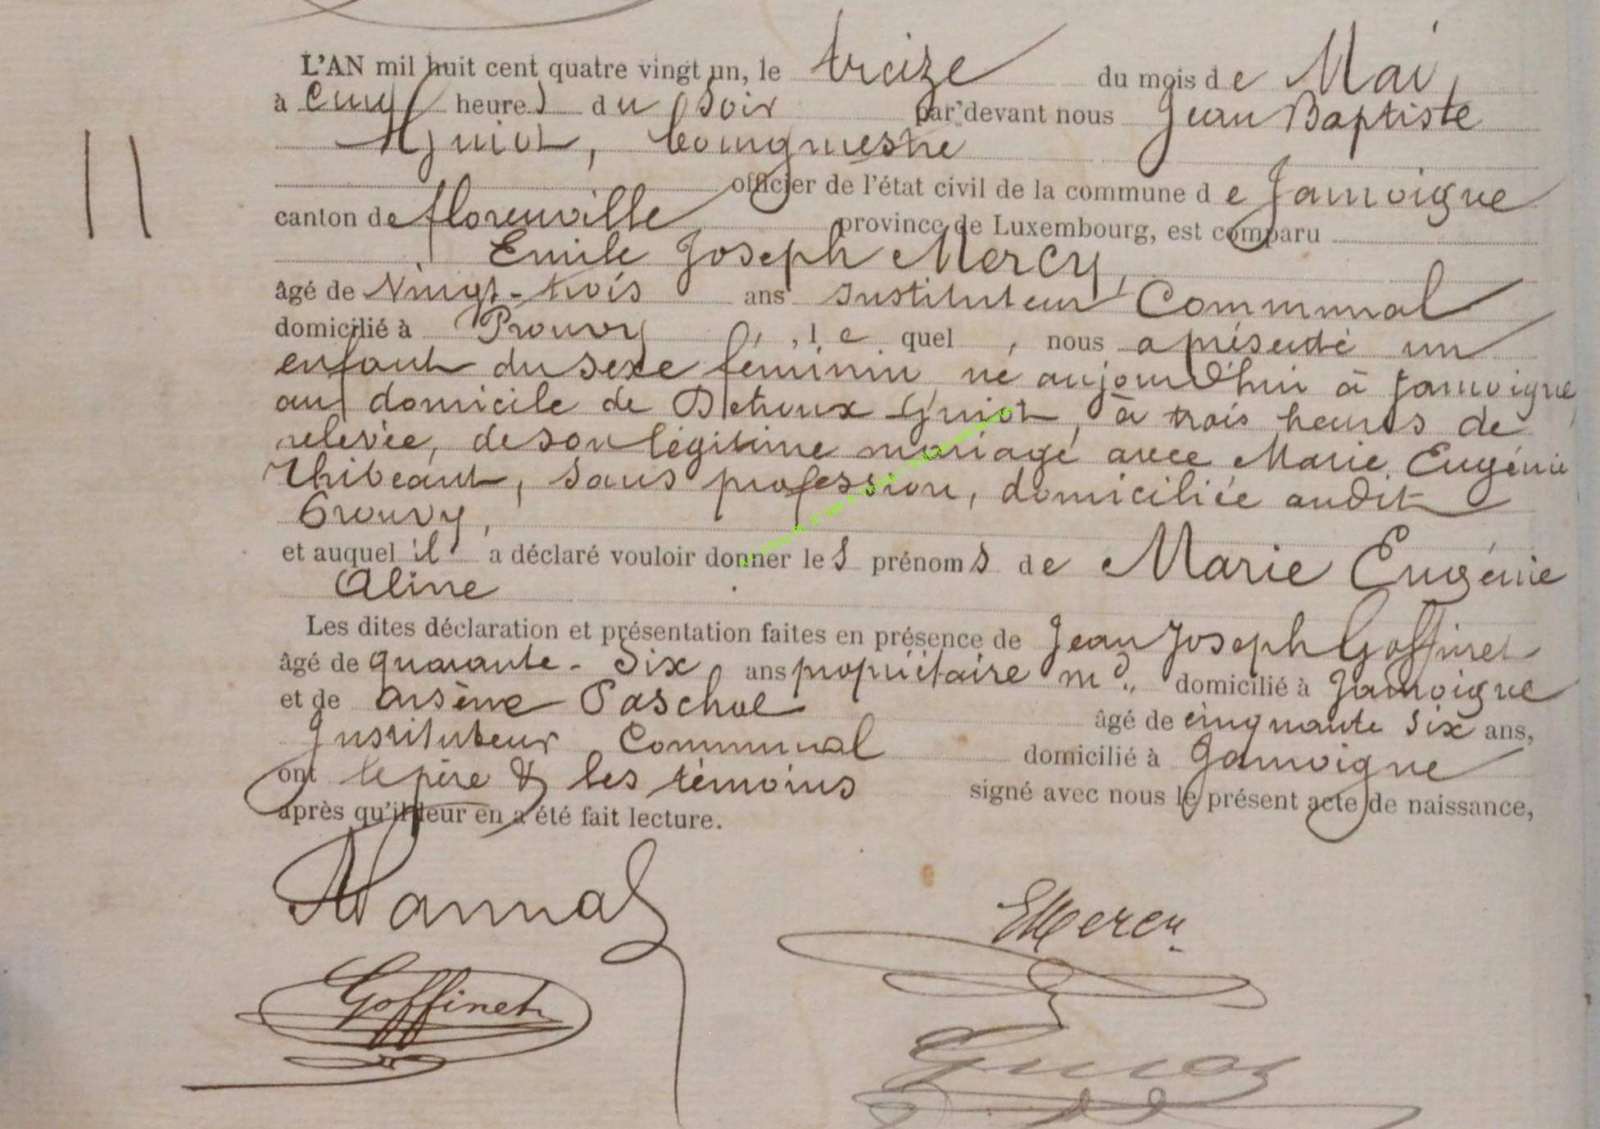 L'AN mil huit cent quatre vingt un, le treize du mois de Mai,
à Cinq heures du Soir par devant nous Jean Baptiste
Guiot, bourgmestre
officier de l'état civil de la commune de Jamoigne
canton de florenville province de Luxembourg, est comparu
Emile Joseph Mercy,
âgé de Vingt-trois ans Instituteur Communal
domicilié à Prouvy, le quel, nous a présenté un
enfant du sexe féminin né aujourd'hui à Jamoigne,
au domicile de Guiot, à trois heures de
relevée, de son légitime mariage avec Marie Eugénie
Thibeaut, sans profession, domiciliée audit
Prouvy,
et auquel il a déclaré vouloir donner les prénoms de Marie Eugénie
Aline
Les dites déclaration et présentation faites en présence de Jean Joseph Goffinet
âgé de quarante-Six ans propriétaire md domicilié à Jamoigne
et de Arsène Paschal âgé de cinquante six ans,
Instituteur Communal domicilié à Jamoigne
ont le père & les témoins signé avec nous le présent acte de naissance,
après qu'il leur en a été fait lecture.
11
EMercy
Goffinet
Guiot